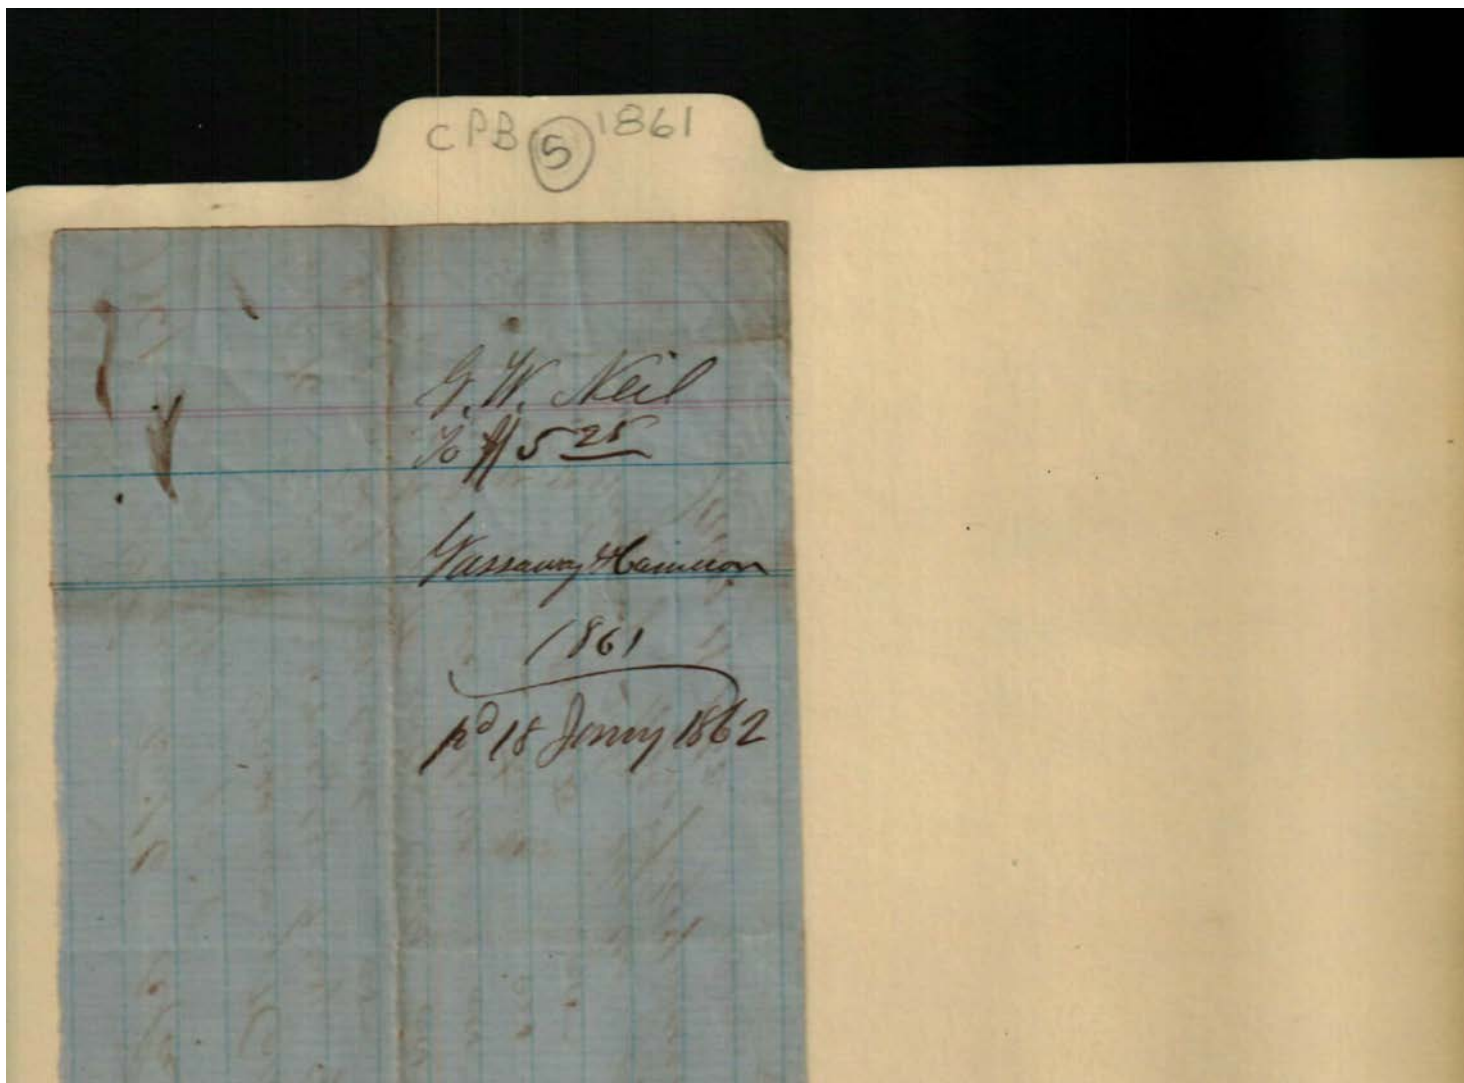 CPB 5 1861
G. W. Neil
To $5 25
Gassaway & Cameron
1861
pd 18 Jany 1862